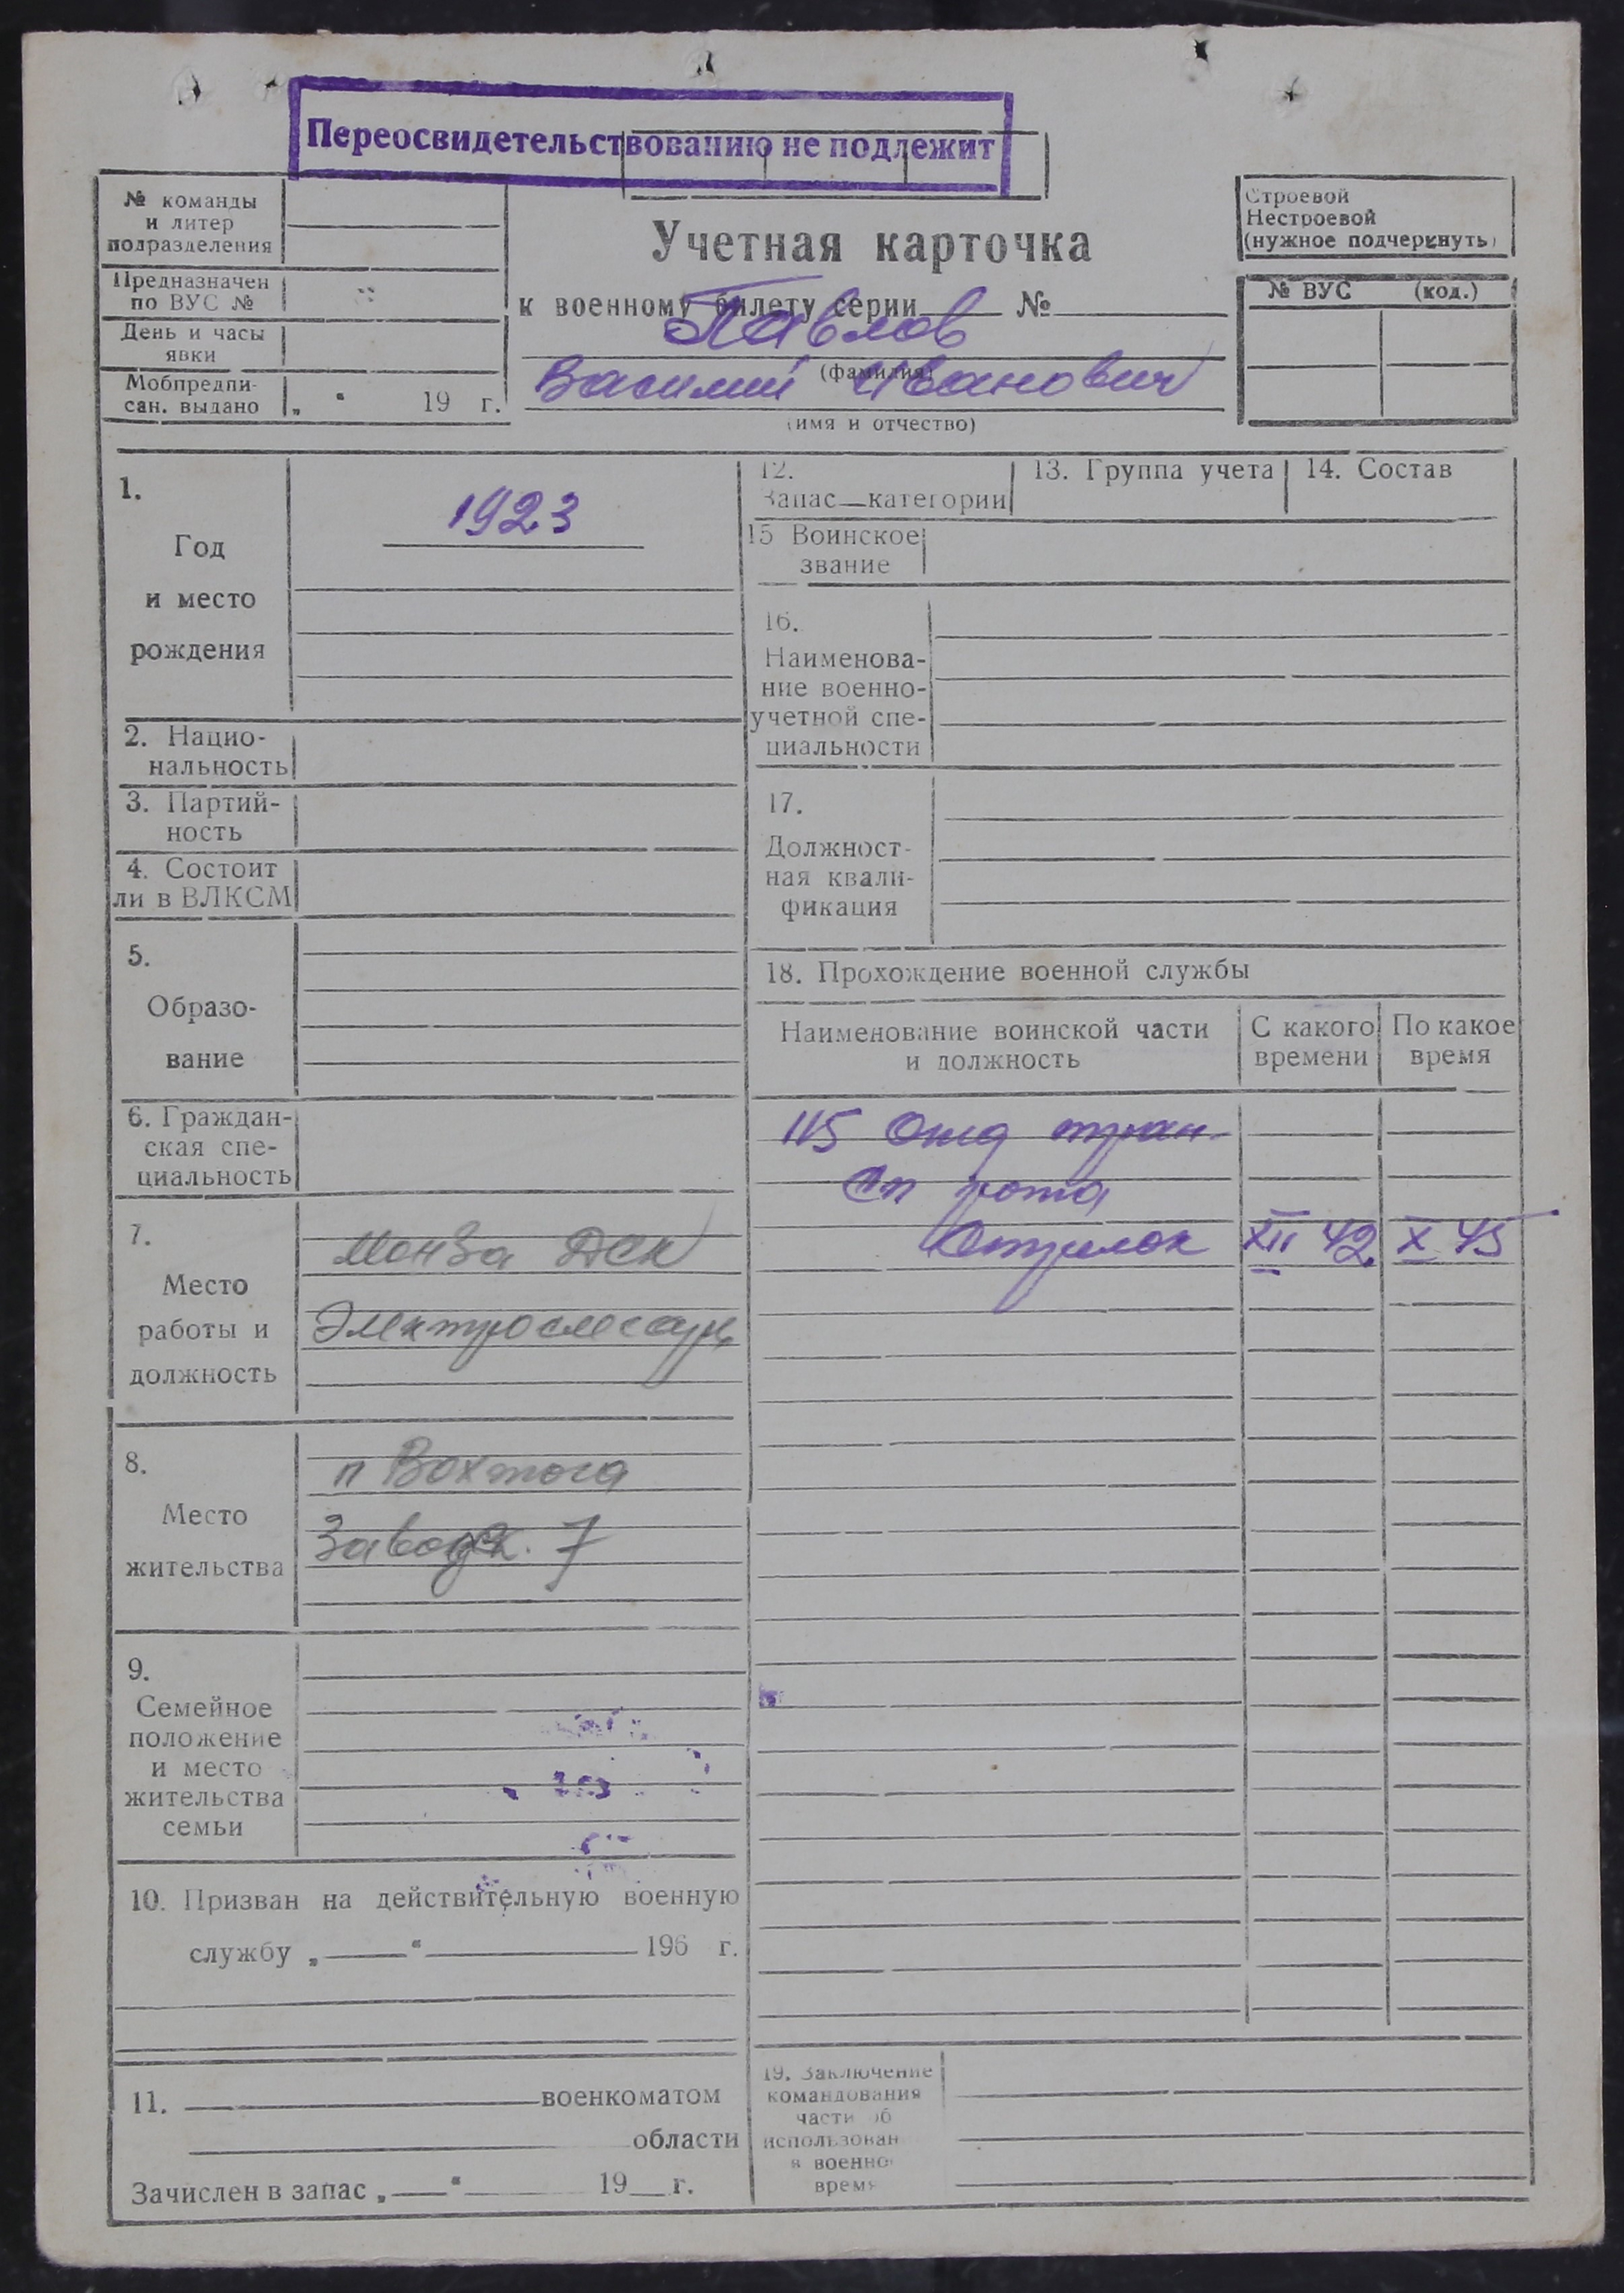 Переосвидетельствованию не подлежит
№ команды
и литер
подразделения
Предназначен
по ВУС №
День и часы
явки
Мобпредпи-
сан. выдано
„ “ 19 г.
Учетная карточка
к военному билету серии №
Павлов
(фамилия)
Василий Иванович
(имя и отчество)
Строевой
Нестроевой
(нужное подчеркнуть)
№ ВУС (код.)
1.
Год
и место
рождения
1923
2. Нацио-
нальность
3. Партий-
ность
4. Состоит
ли в ВЛКСМ
5.
Образо-
вание
6. Граждан-
ская спе-
циальность
7.
Место
работы и
должность
Монза ДСК
Электрослесарь
8.
Место
жительства
п Вохтога
Заводск. 7
9.
Семейное
положение
и место
жительства
семьи
10. Призван на действительную военную
службу „ “ 196 г.
11. военкоматом
области
Зачислен в запас „ “ 19 г.
12.
Запас категории
13. Группа учета
14. Состав
15 Воинское
звание
16.
Наименова-
ние военно-
учетной спе-
циальности
17.
Должност-
ная квали-
фикация
18. Прохождение военной службы
Наименование воинской части
и должность
С какого
времени
По какое
время
115 Отд тран-
сп рота
Стрелок XII 42 X 45
19. Заключение
командования
части об
использован
в военно
время